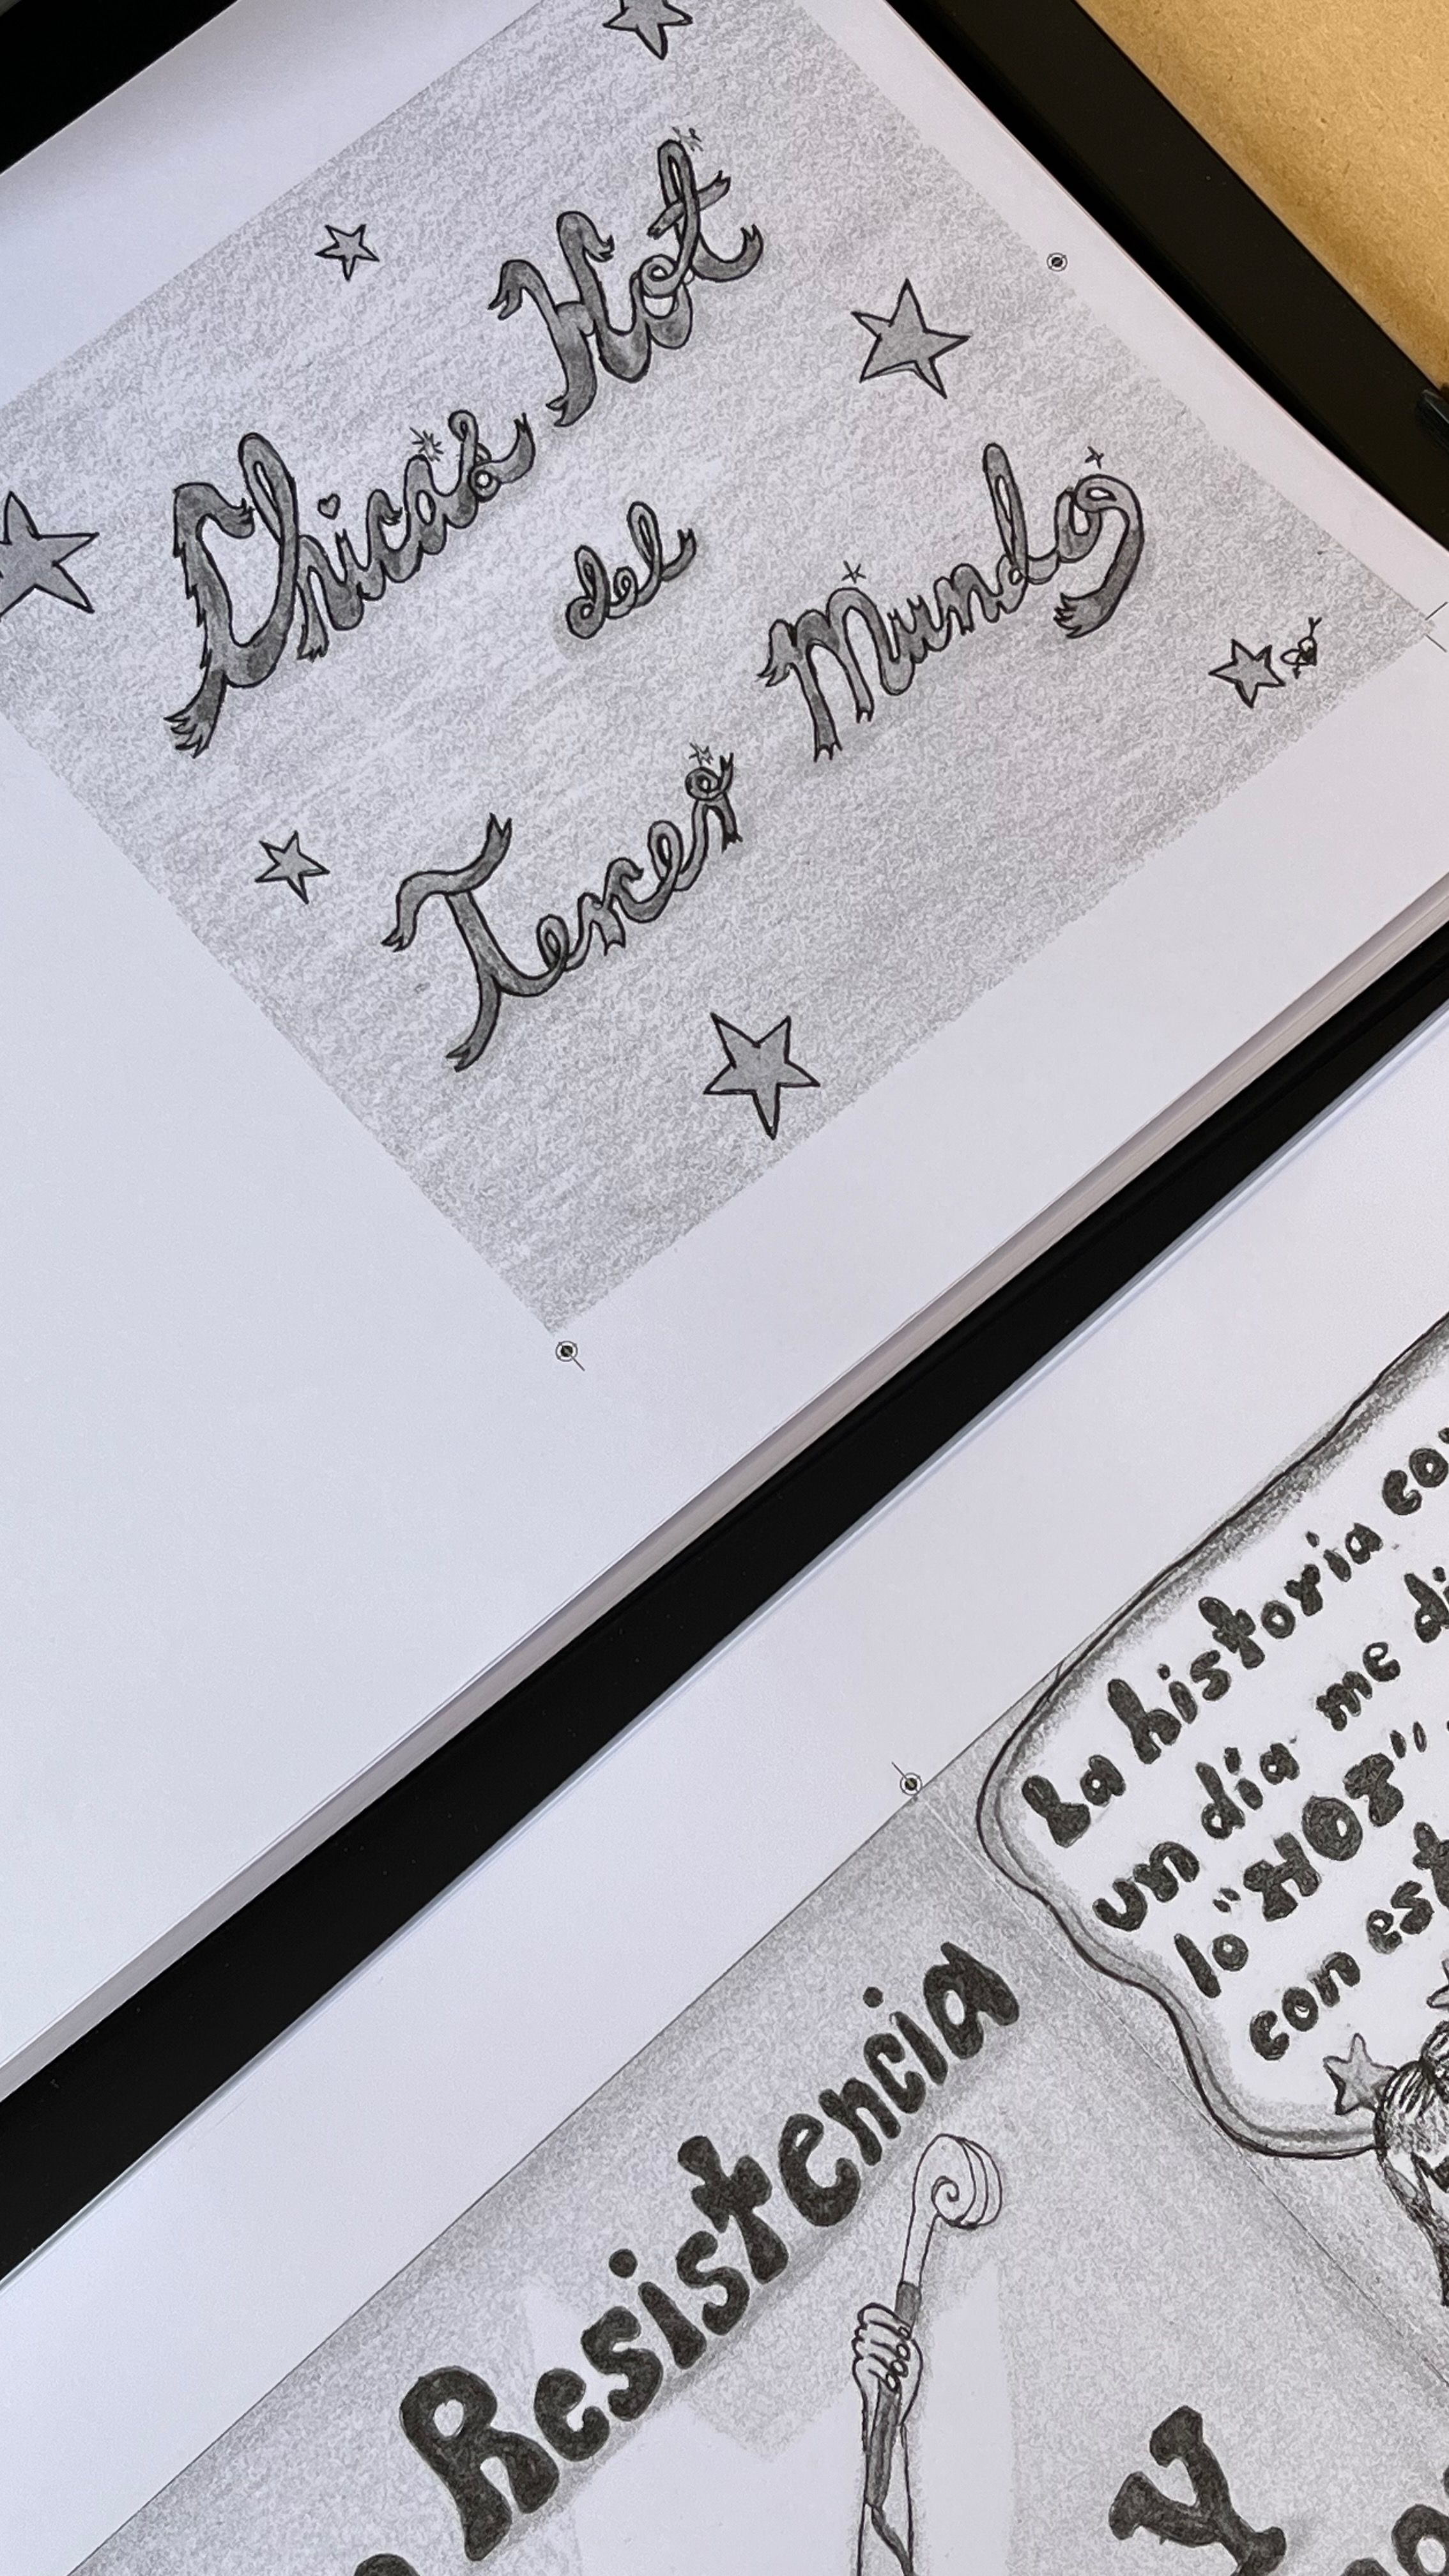 Chicas Hot
del
Tercer Mundo
La historia
un día me
lo "HOT"
con
Resistencia
Y